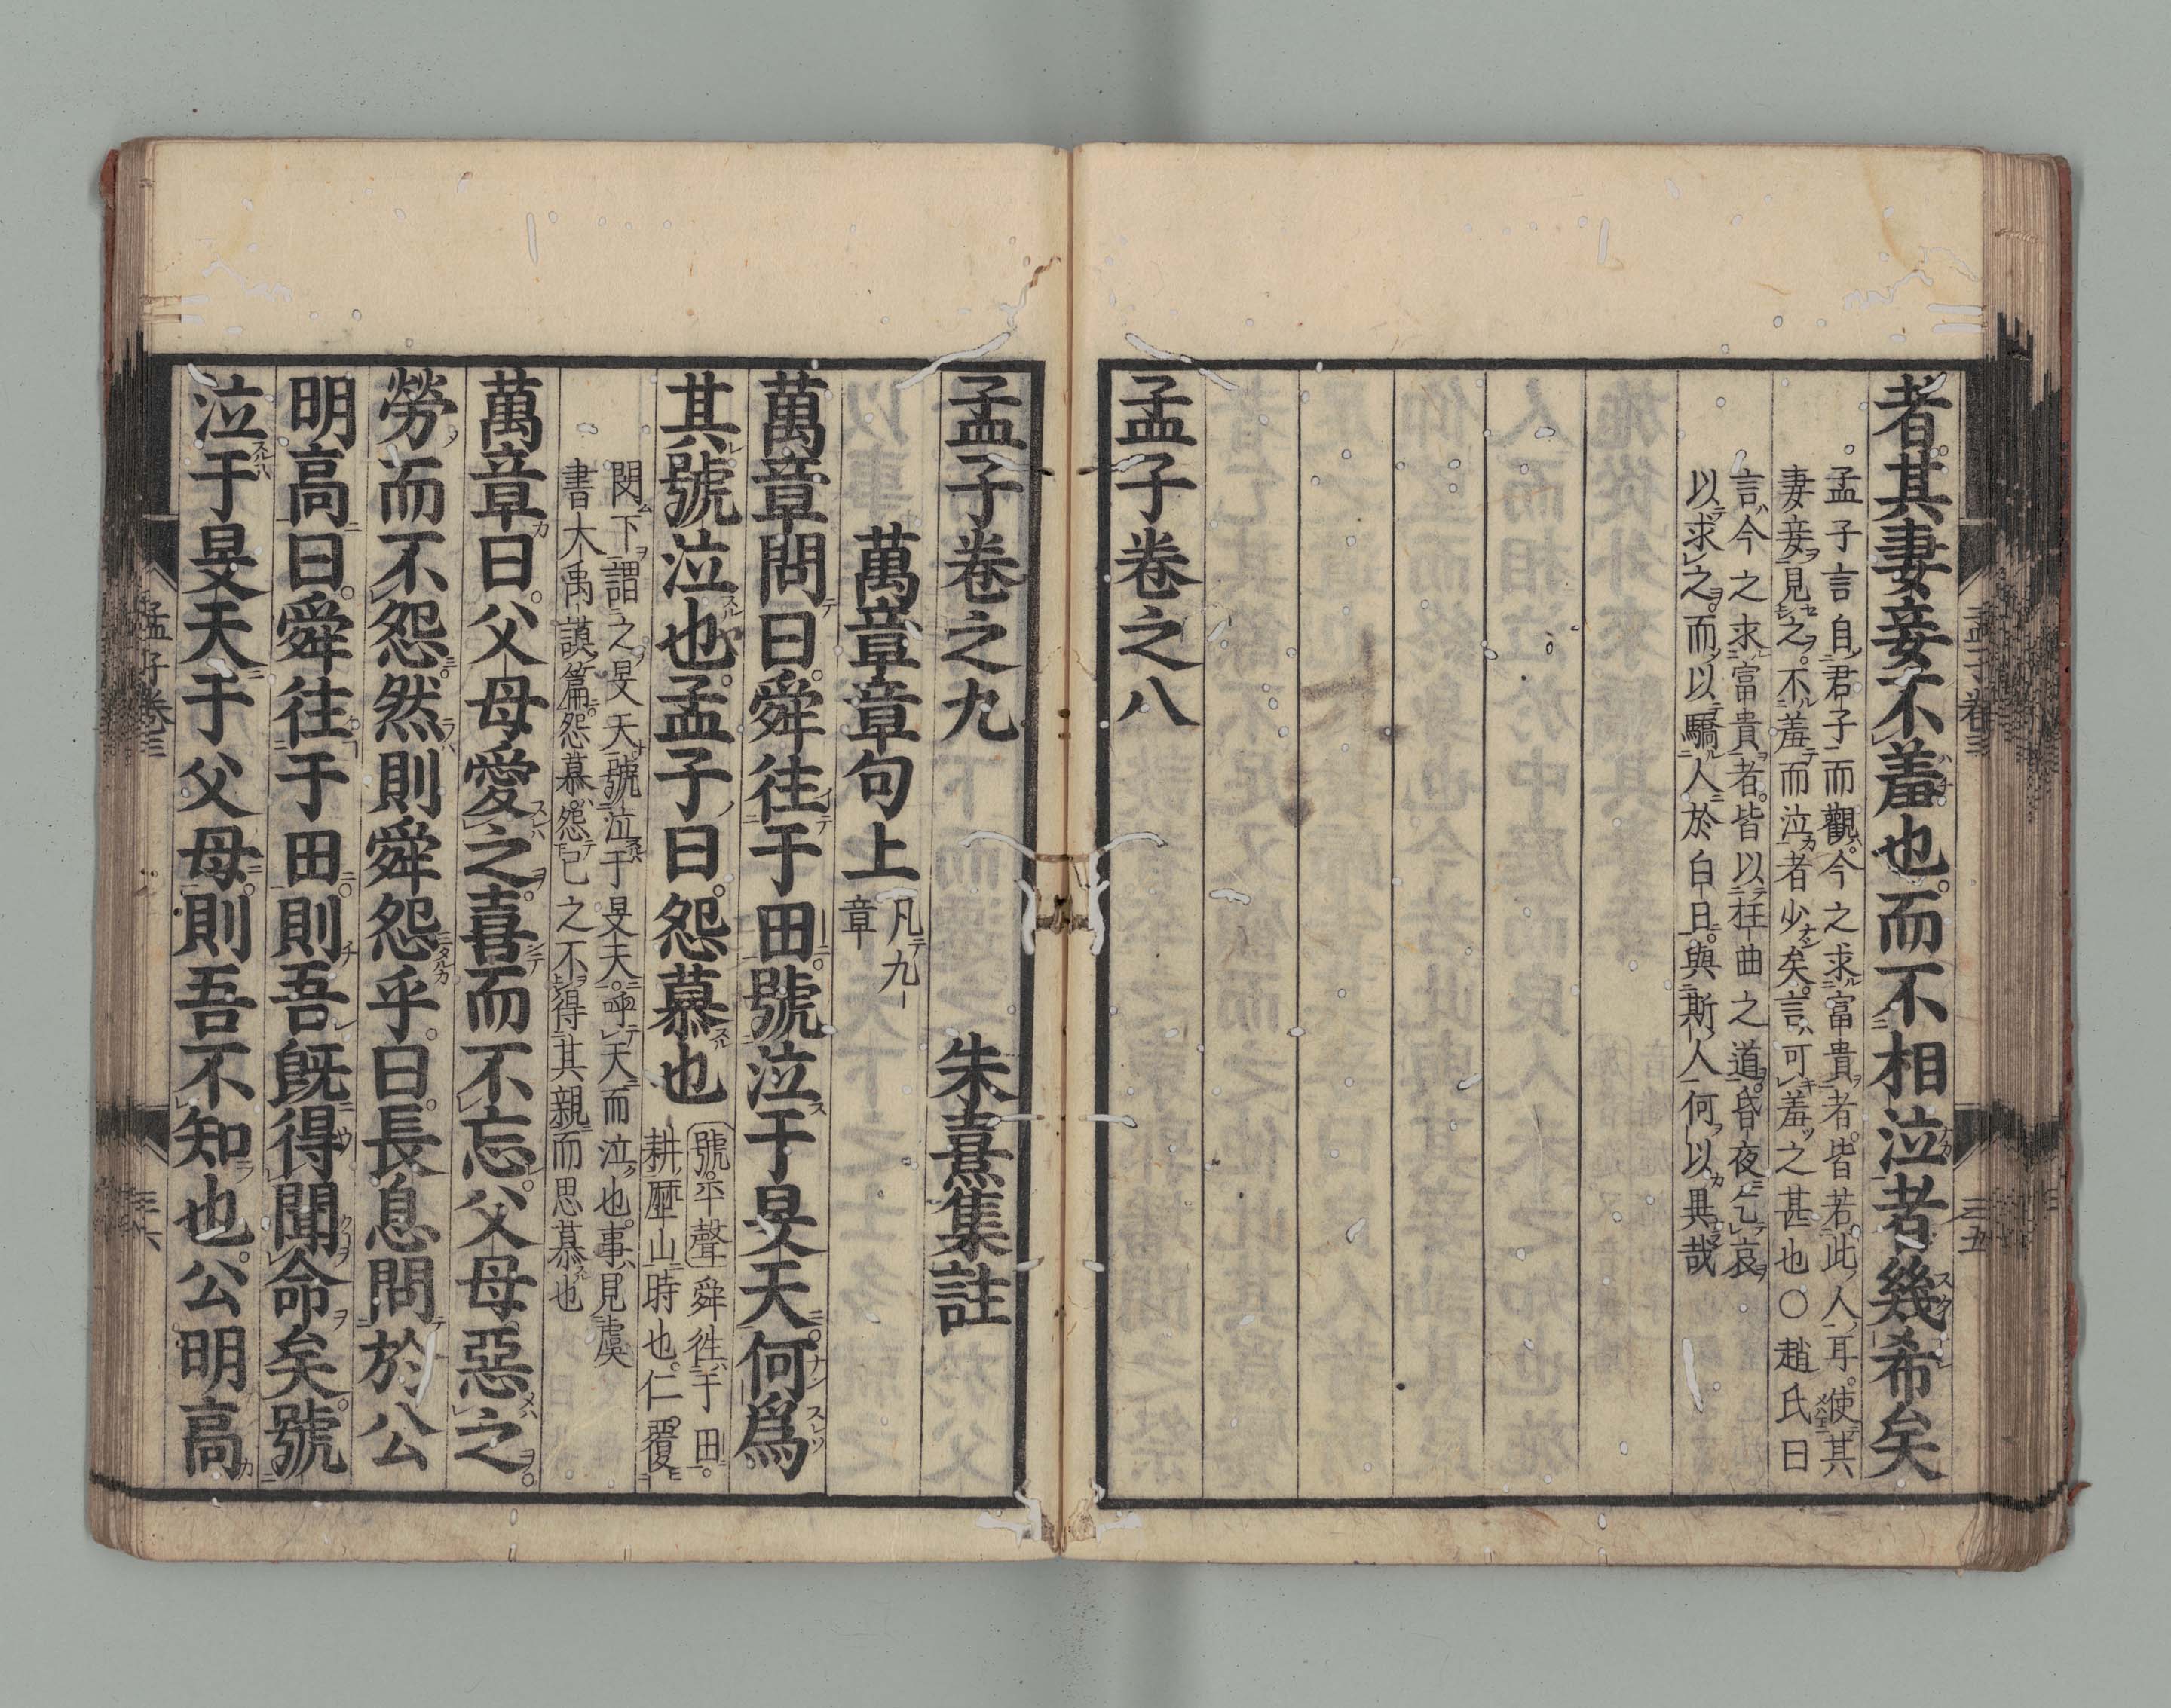 者其妻妾不羞也而不相泣者幾希矣
孟子言自君子而觀今之求富貴者皆若此人耳使其
妻妾見之不羞而泣者少矣言可羞之甚也○趙氏曰
言今之求富貴者皆以枉曲之道昏夜乞哀
以求之而以驕人於白日與斯人何以異哉
孟子卷之八
孟子卷之九　朱熹集註
萬章章句上
凡九
章
萬章問曰舜往于田號泣于旻天何爲
其號泣也孟子曰怨慕也
號平聲舜徃于田
耕歷山時也仁覆
閔下謂之旻天號泣于旻天呼天而泣也事見虞
書大禹謨篇怨慕怨己之不得其親而思慕也
萬章曰父母愛之喜而不忘父母惡之
勞而不怨然則舜怨乎曰長息問於公
明高曰舜往于田則吾旣得聞命矣號
泣于旻天于父母則吾不知也公明高
孟子卷三
三五
孟子卷三
三六